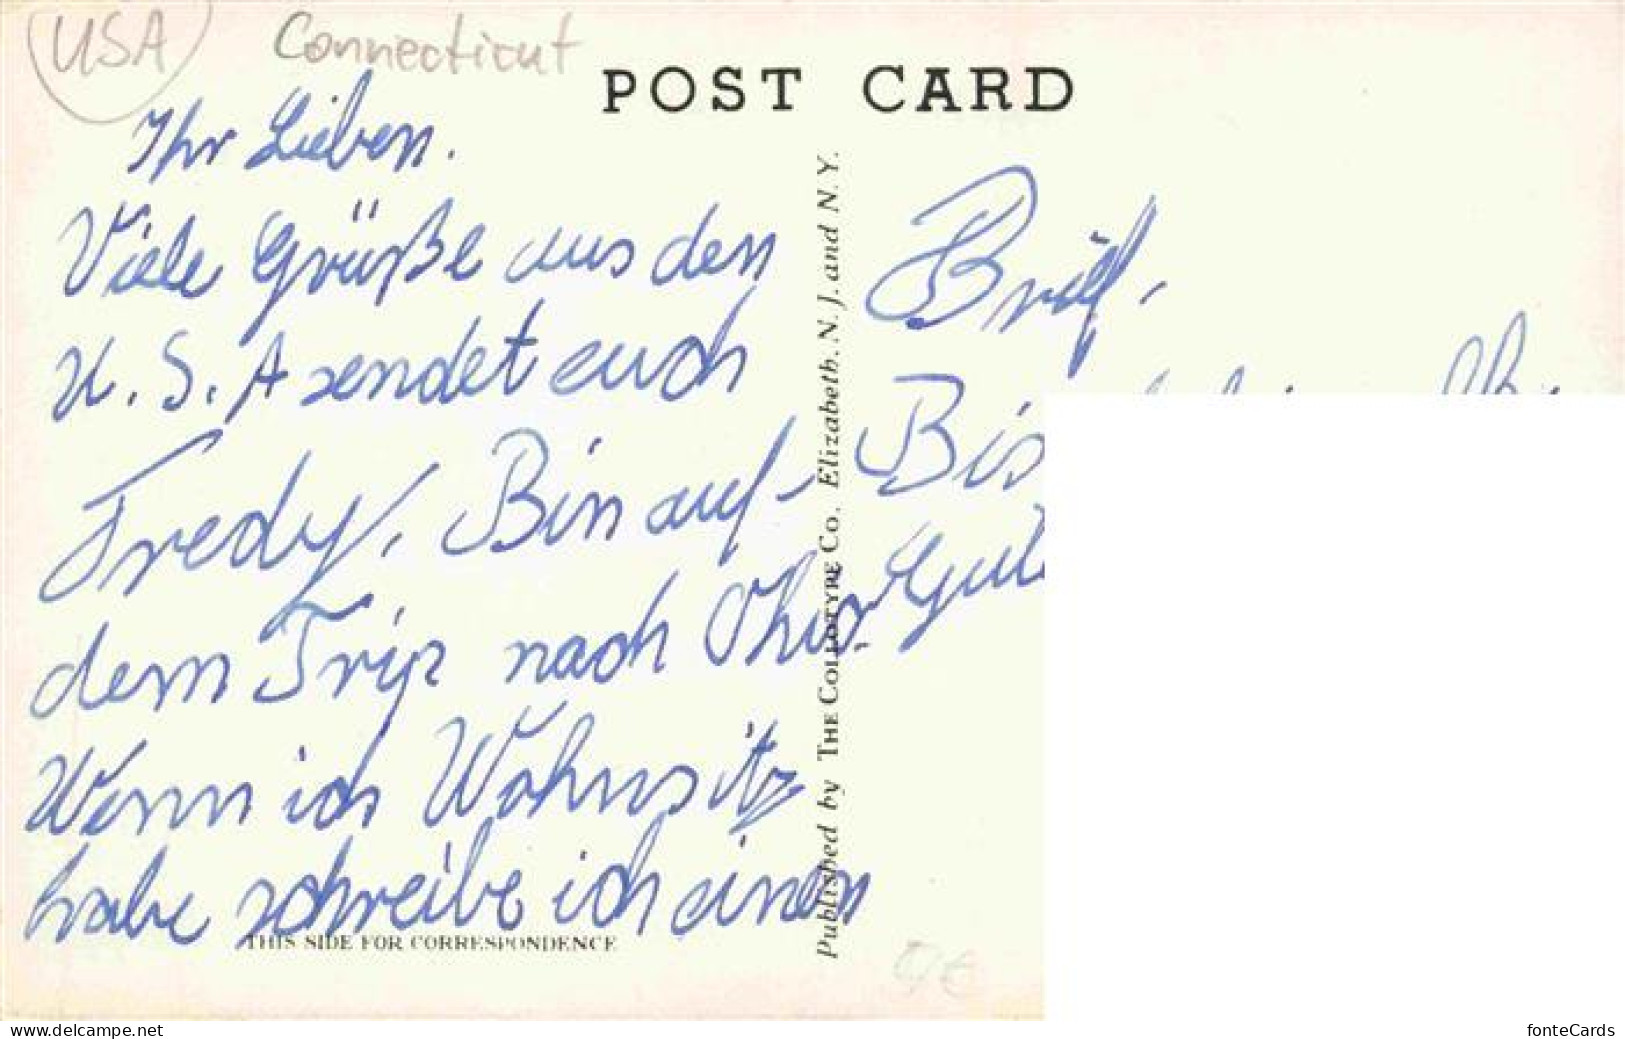 USA Connecticut
POST CARD
Ihr Lieben.
Viele Grüße aus den
U.S.A sendet euch
Fredy. Bin auf
dem Trip nach Ohio.
Wenn ich Wohnsitz
habe schreibe ich einen
Brief.
Bis
Published by THE COLLOTYPE Co. Elizabeth, N. J. and N. Y.
THIS SIDE FOR CORRESPONDENCE
www.delcampe.net
fonteCards